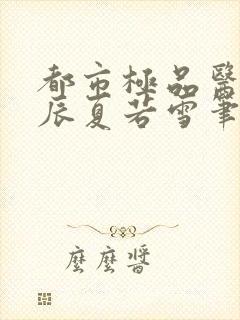 都市極品醫
辰夏若雪筆
麼麼醬